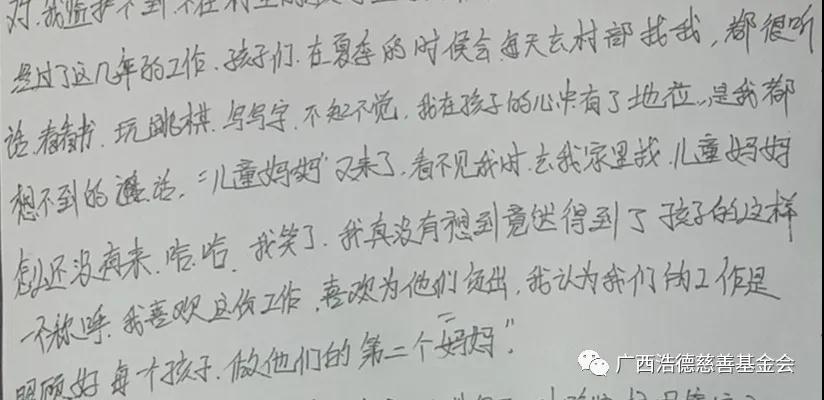 对,我
是过了这几年的工作,孩子们,在夏季的时候会每天去村部找我,都很听
话,看看书,玩跳棋,写写字,不知不觉,我在孩子的心中有了地位,是我都
想不到的,"儿童妈妈"又来了,看不见我时,去我家里找,儿童妈妈
怎么还没有来,哈哈,我笑了,我真没有想到竟然得到了孩子的这样
一个称呼,我喜欢这份工作,喜欢为他们付出,我认为我们的工作是
照顾好每个孩子,做他们的第二个"妈妈"。
广西浩德慈善基金会